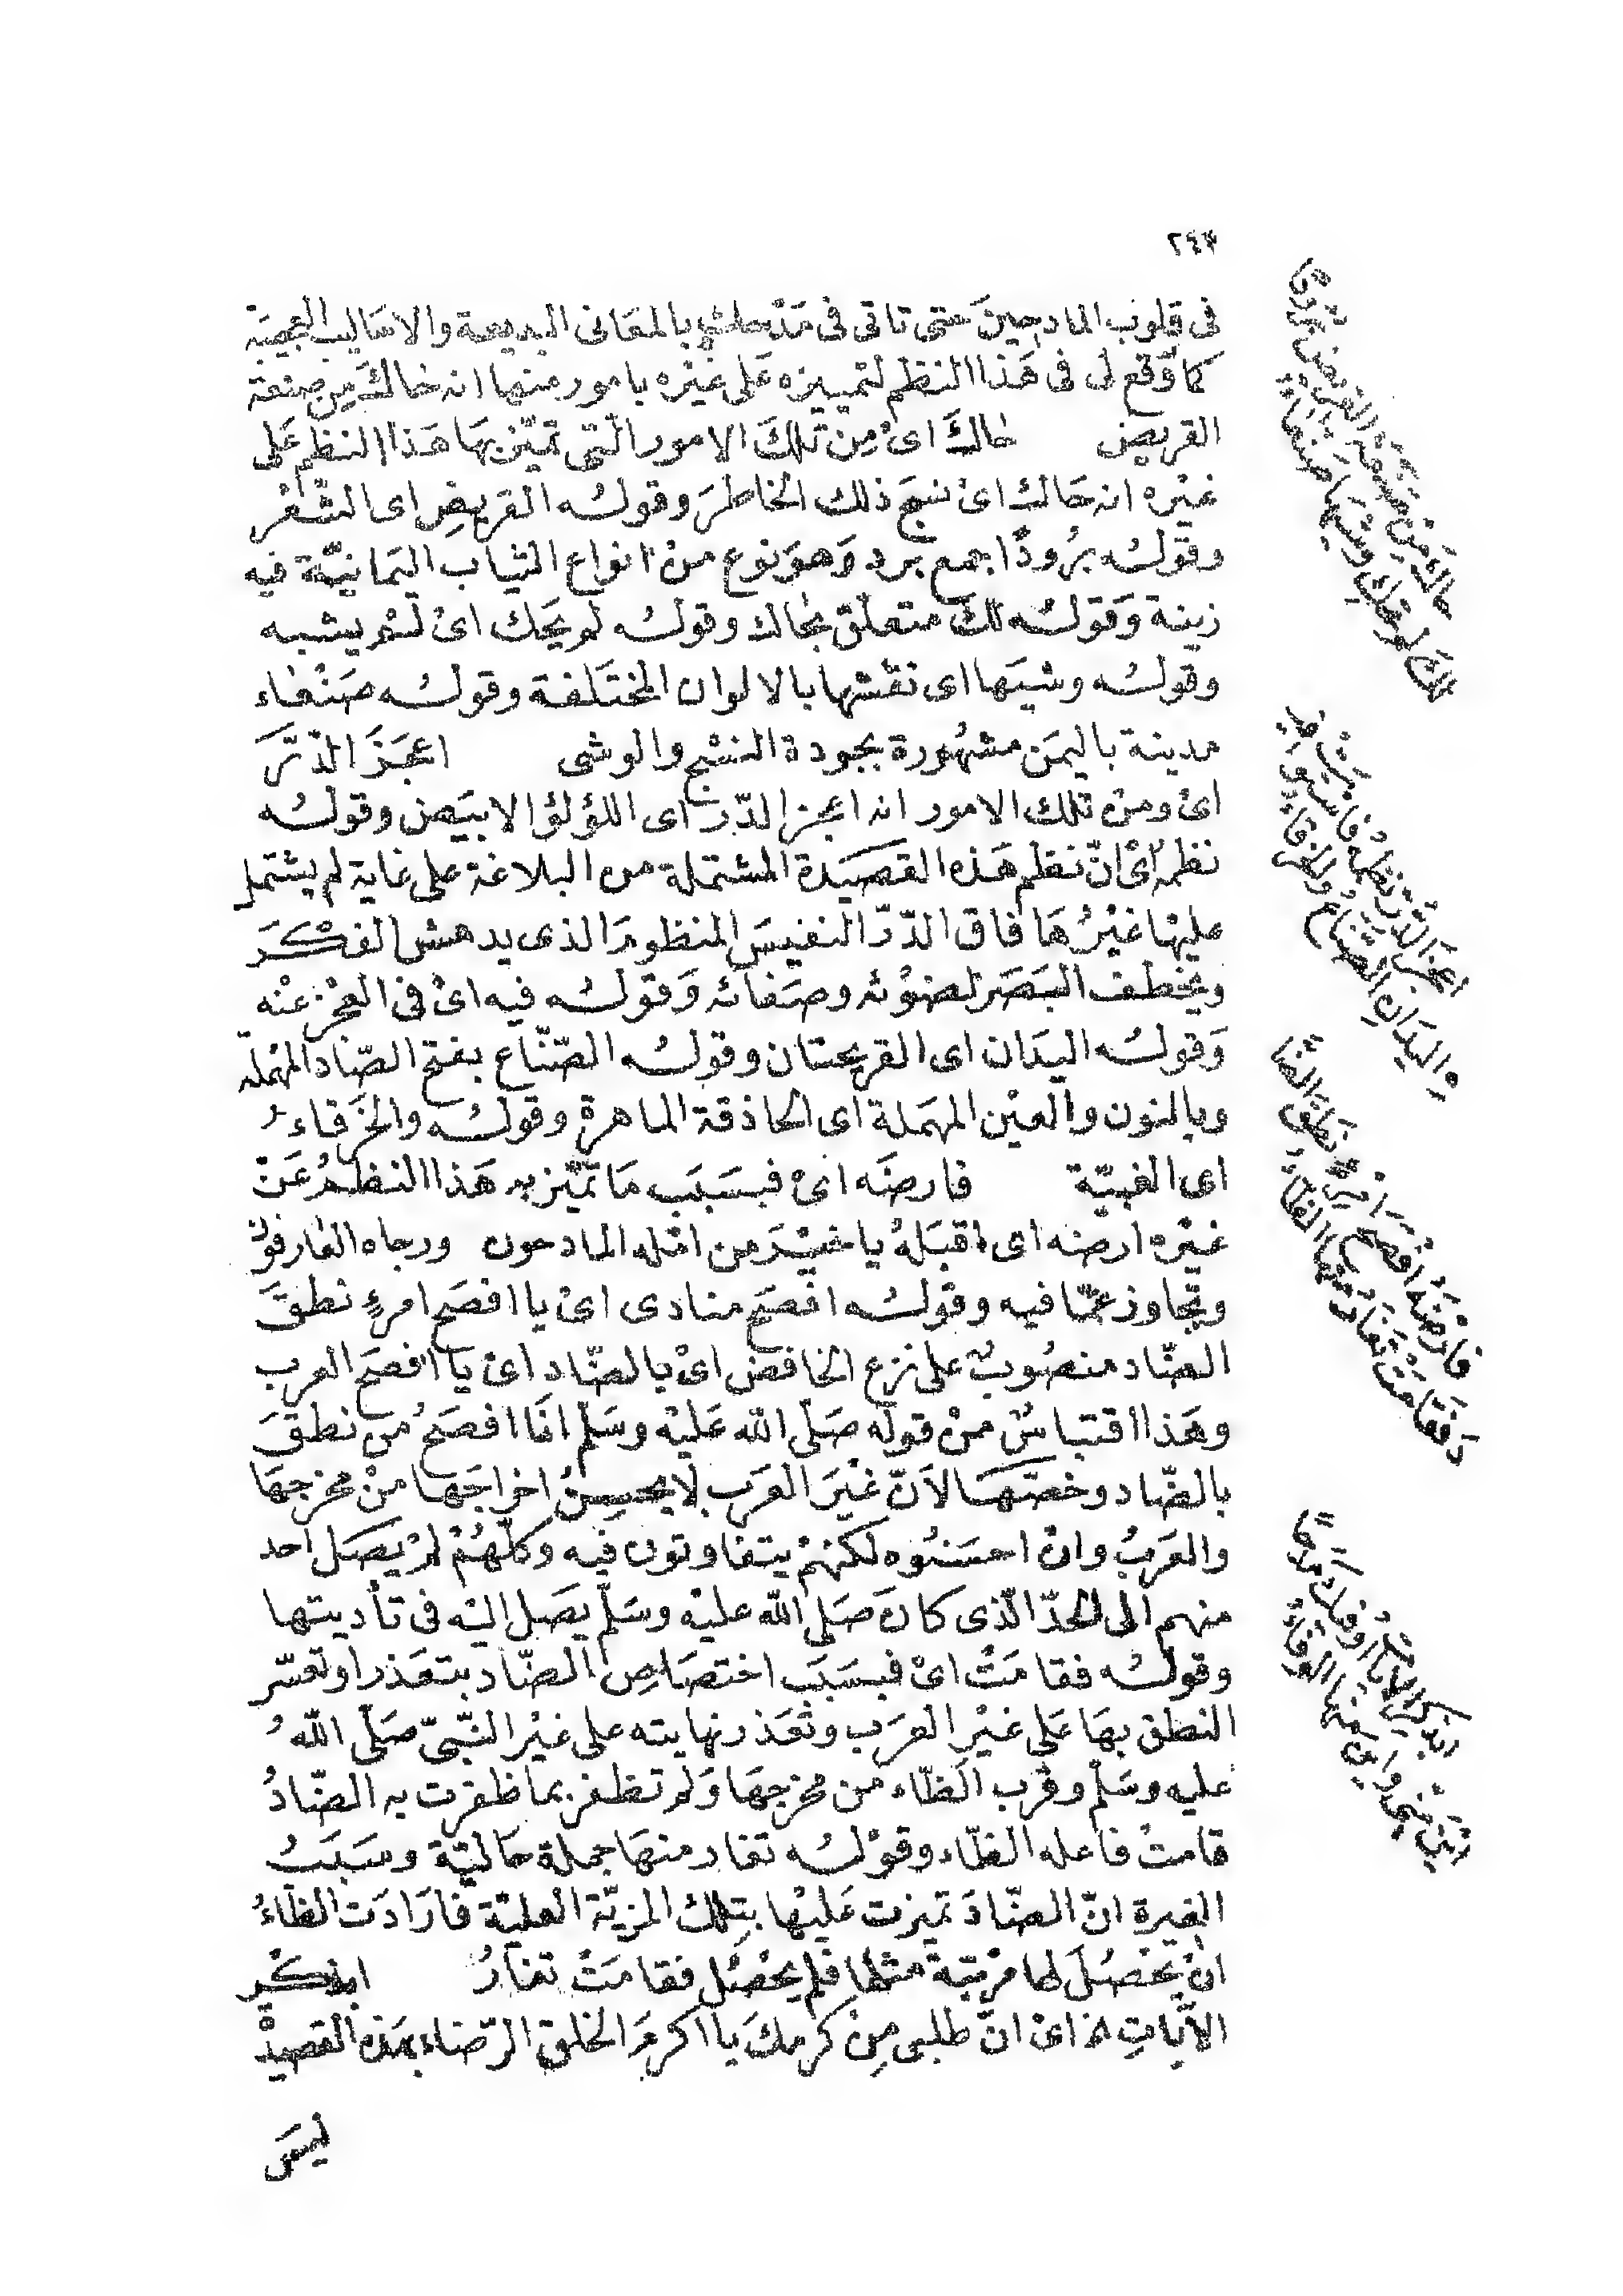 ٢٤٧
فى قلوب المادحين حتى تاتى فى مدحك بالمعانى البديعة والاساليب العجيبة
كما وقع لى فى هذا النظم لتمييزه على غيره بامور منها انه حاك من صنعة
القريض حاك اىْ مِن تلكَ الامور التى تميّز بهَا هَذا النظم عَلى
غيْره انه حَاك اىْ نسجَ ذلك الخاطرَ وقولـُه القريضِ اى الشّعْر
وقولـُه برُودًا جمع برد وَهوَ نوع منْ انواع الثياب اليَمانيّة فيه
زينة وَقولـُه لكَ متعلّق بحاك وقولـُه لم يَحك اىْ لمْ يشبه
وقولـُه وشيَها اى نقشها بالالوان المختَلفة وقولـُه صَنْعاء
مدينة باليمَن مشهُورة بجودة النسْج والوشى اعجَزَ الدّرَّ
اىْ ومنْ تلك الامور انه اعجز الدّرّ اى اللؤلؤ الابيَض وقولـُه
نظمُه اىْ انّ نظم هَذه القصَيدَة المشتملة من البلاغة على غاية لم يشتمل
عليهْا غيْرُهَا فاق الدّرّ النفيسَ المنظومَ الذى يدهش الفكْرَ
ويخطف البَصَرَ لضوْئه وصَفائه وَقولـُه فيه اىْ فى العجْز عنْه
وَقولـُه اليدَان اى القريحتان وقولـُه الصّنّاع بفتح الصّاد المهْملة
وبالنون والعيْن المهمَلة اى الحاذقة الماهرة وقولـُه والخرَقاءُ
اى الغبيّة فارضَه اىْ فبسَبَب مَا تميّز به هَذا النظمُ عَنْ
غيْره ارضه اى اقبَلهُ ياخيْرَ من امّله المادحون ورجاه العارفونَ
وتجاوز عمّا فيه وقولـُه افصَح منادى اىْ يا افصَح امرءٍ نطقَ
الضّاد منصُوبٌ على نزع الخافض اىْ بالضّاد اىْ يا افصَح العرب
وهَذا اقتباسٌ منْ قوله صَلّى الله عَليْه وسَلّم انَا افصَحُ من نطقَ
بالضّاد وخصّهَا لاَنّ غيْرَ العَرَب لا يحسِنُ اخراجَها منْ مخرجهَا
والعَرَبُ وانْ احسَنُوه لكنهمْ يتفاوتون فيه وكلّهُمْ لمْ يصَل احد
منهم الى الحدّ الّذى كانَ صَلى الله عليْه وسَلّم يصَل اليْه فى تأديتها
وقولـُه فقامَتْ اىْ فبسَبَب اختصَاصِ الضّاد بتعَذر او تعسّر
النطق بهَا عَلى غيْرِ العرَب وتعَذر نهايته على غيْر النّبىّ صَلّى اللهُ
عليه وسَلّم وقرْب الظّاء من مخرجهَا وَلم تظفر بما ظفرت به الضّادُ
قامتْ فاعله الظّاء وقوْلـُه تغار منهَا جملة حَاليّة وسَبَبُ
الغيرة انّ الضّادَ تميزت عَليْها بتِلك المزيّة العليّة فارَادَت الظّاءُ
انْ يحْصُلَ لها مرْتبة مثلها فلم يحْصُل فقامَتْ تغارُ ابذكْر
الآيَاتِ الخ اىْ انّ طلبى مِنْ كرمكَ يا اكرمَ الخلق الرّضاء بهَذه القصيدْ
ليسَ
حاك من صنعة القريض برودا
لك لم يحك وشيها صنعاء
اعجز الدر نظمه فاستوت فيه
اليدان الصناع والخرقاء
فارضه افصح امرئ نطق الضا
د فقامت تغار منها الظاء
ابذكر الايات اوفيك مدحا
اين منى واين منها الوفاء